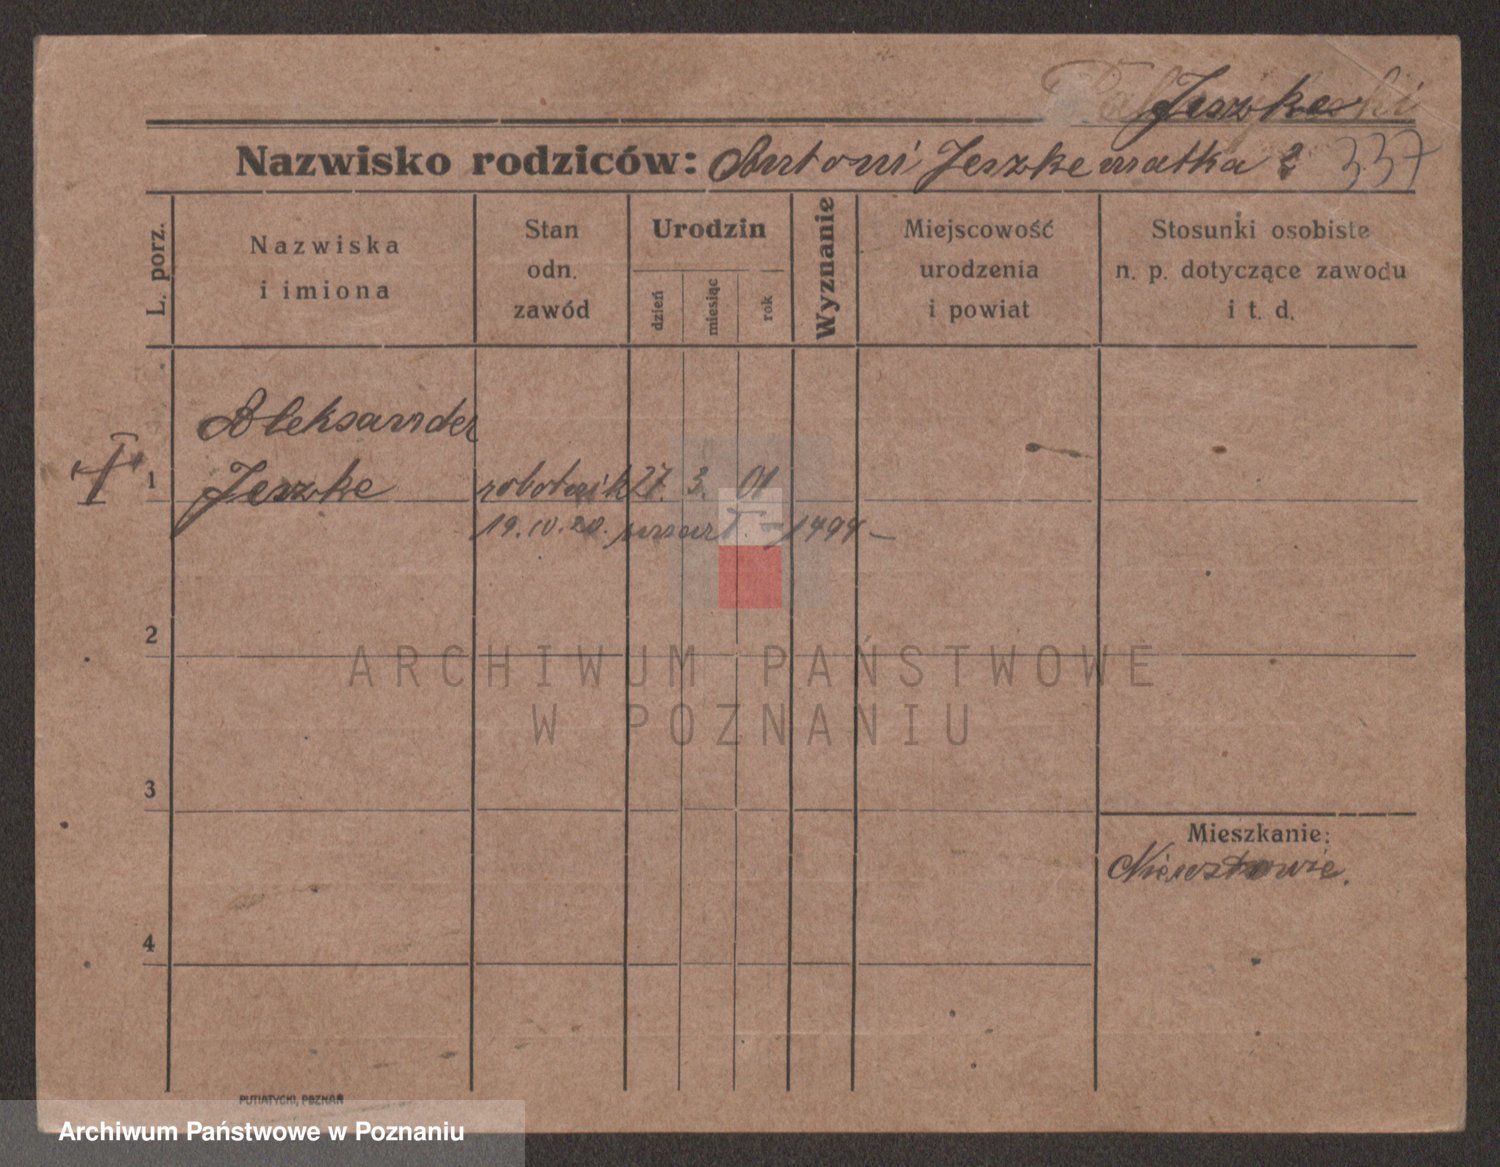 Jeszke
Nazwisko rodziców: Antoni Jeszke matka ? 337
L. porz.
Nazwiska
i imiona
Stan
odn.
zawód
Urodzin
dzień
miesiąc
rok
Wyznanie
Miejscowość
urodzenia
i powiat
Stosunki osobiste
n. p. dotyczące zawodu
i t. d.
Aleksander
1 Jeszke robotnik 27. 3. 01
19. IV. 20. - 1494 -
2
ARCHIWUM PAŃSTWOWE
W POZNANIU
3
Mieszkanie:
4
PUTIATYCKI, POZNAŃ
Archiwum Państwowe w Poznaniu